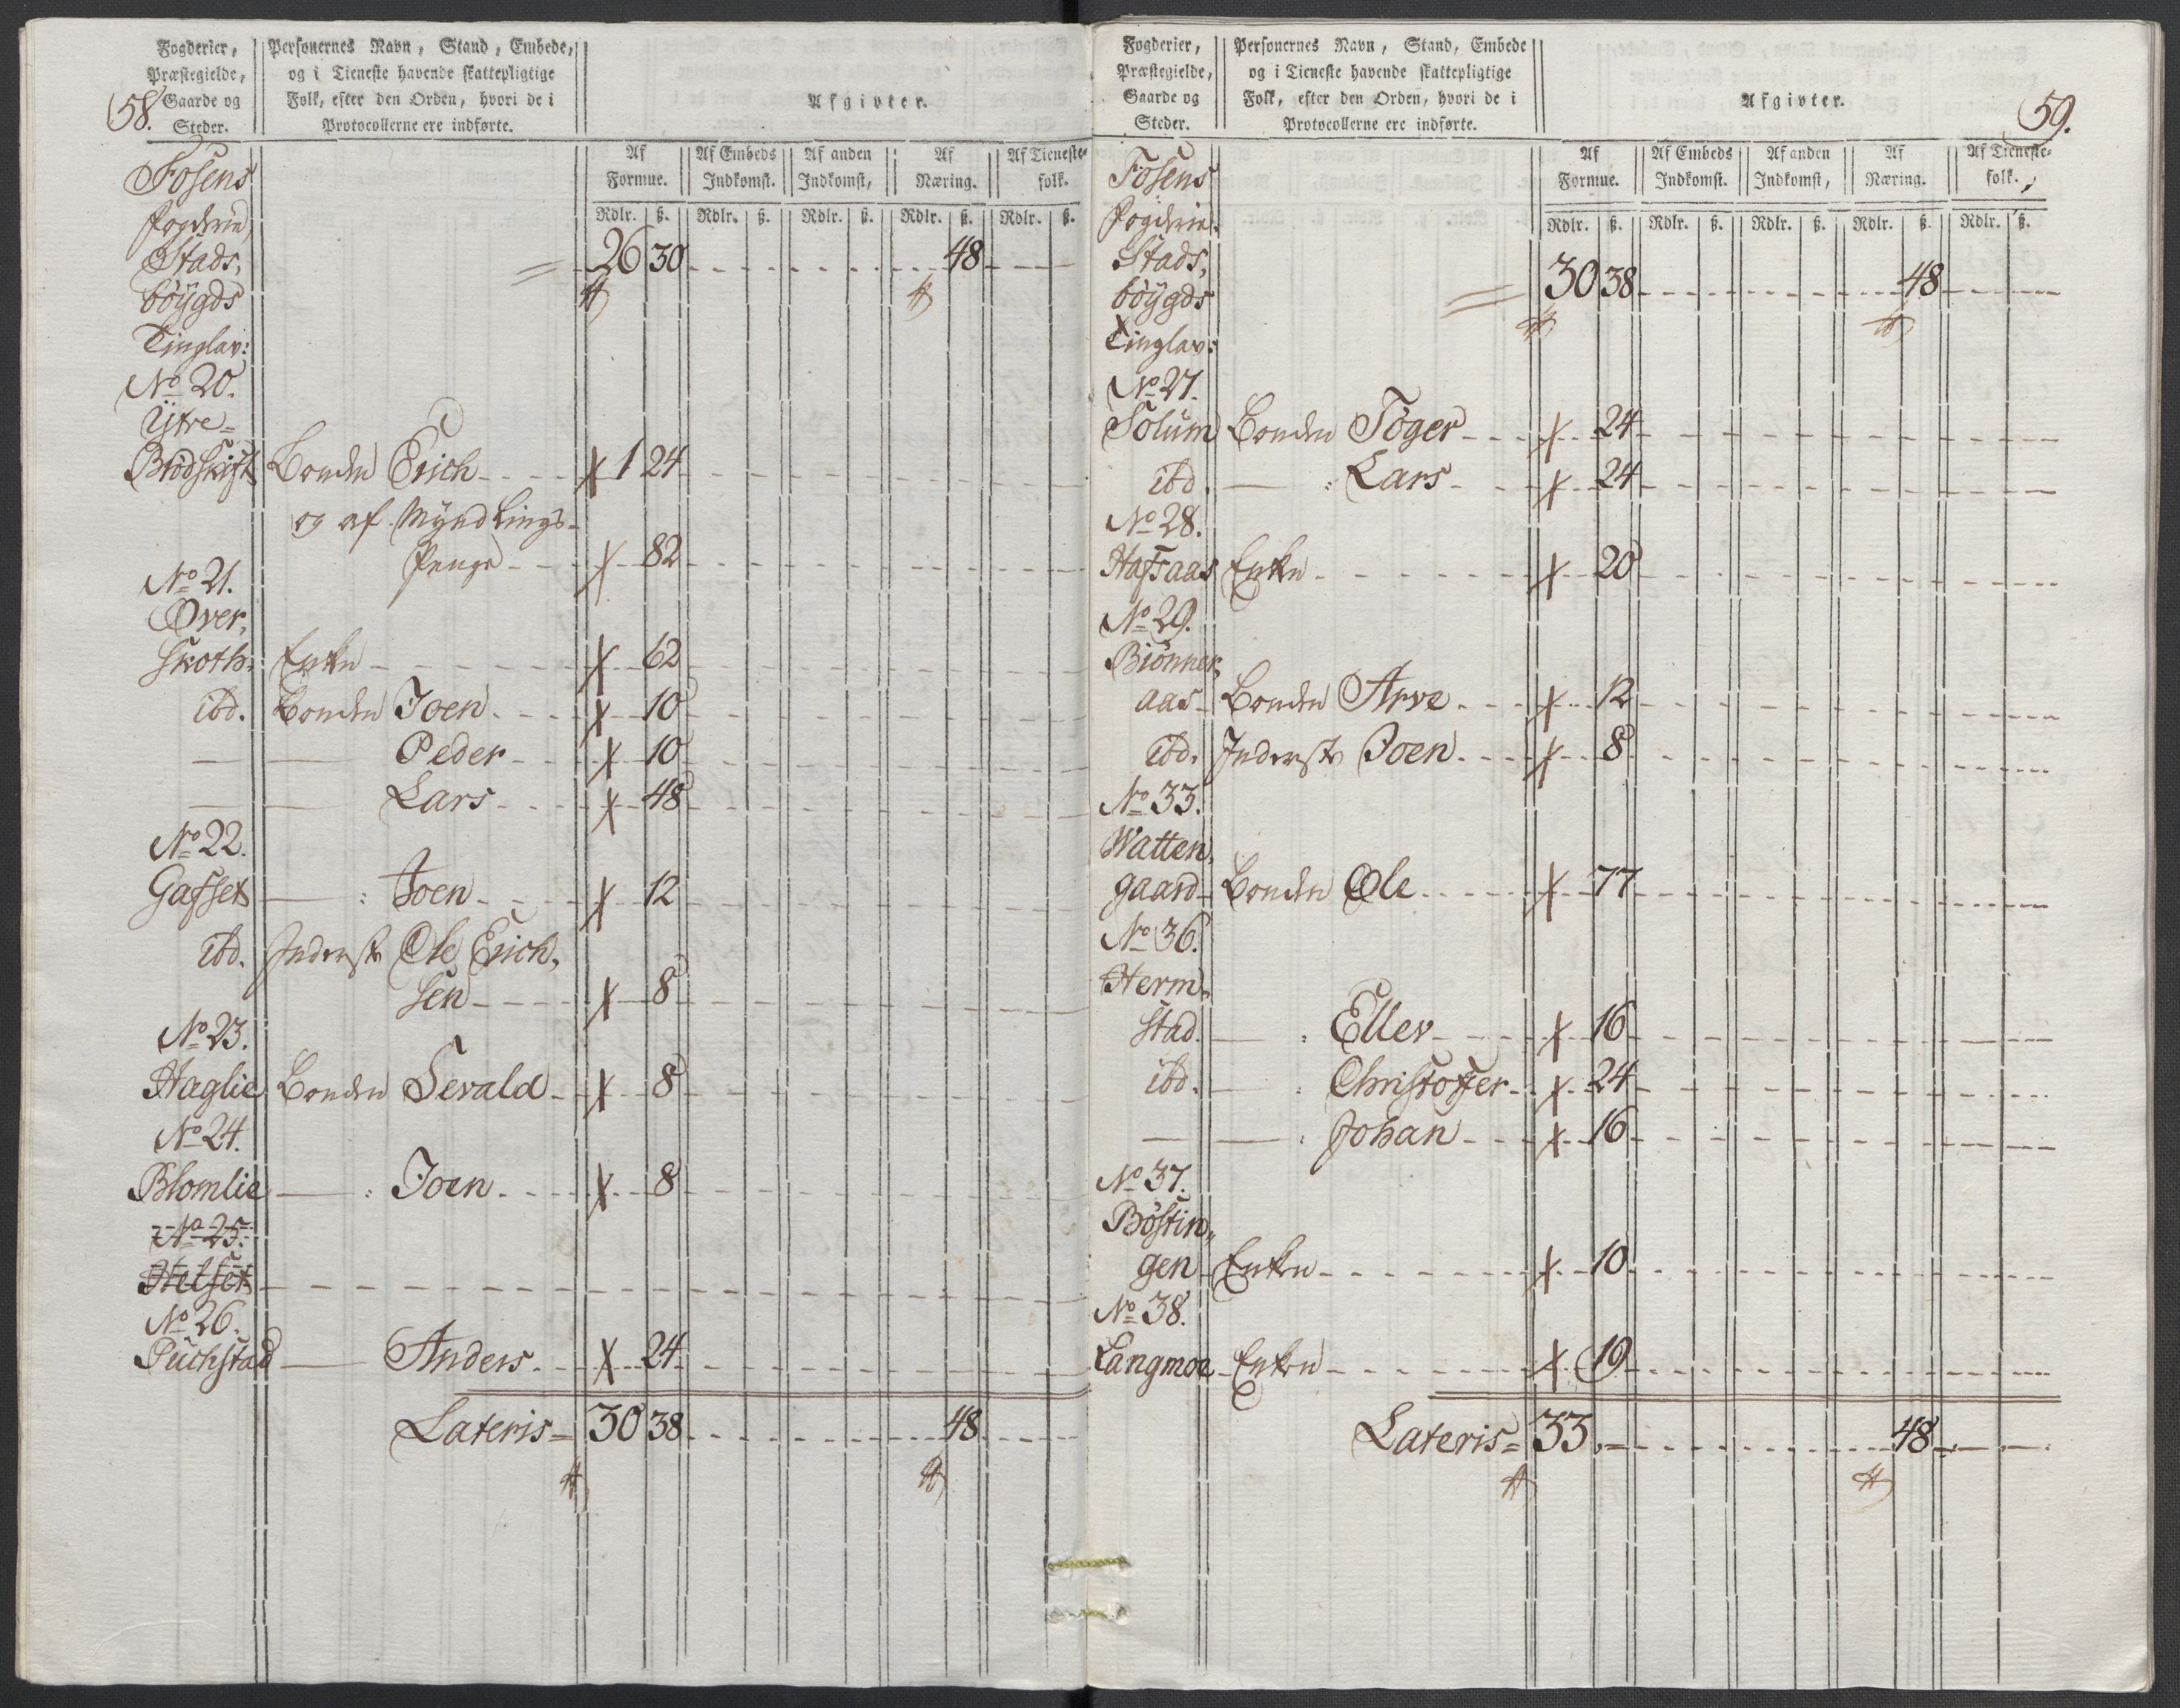 58.
Fogderier,
Præstegielde,
Gaarde og
Steder.
Personernes Navn, Stand, Embede,
og i Tieneste havende skattepligtige
Folk, efter den Orden, hvori de i
Protocollerne ere indførte.
Afgivter.
Af Formue.
Af Embeds Indkomst.
Af anden Indkomst,
Af Næring.
Af Tieneste-folk.
Rdlr. ß. Rdlr. ß. Rdlr. ß. Rdlr. ß. Rdlr. ß.
Fosens
Fogderie,
Stads, 26 30 48
böygds
Tinglav:
No 20.
Ÿtre-
Brödskift Bonden Erich 1 24
og af Mÿndlings-
Penge 82
No 21.
Over,
skoth: Enke 62
ibd. Bonden Joen 10
— — Peder 10
— — Lars 48
No 22.
Gafset — : Joen 12
ibd. Inderste Ole Erich,
sen 8
No 23.
Haglie Bonden Sevald 8
No 24.
Blomlie — : Joen 8
No 25.
Helset
No 26.
Puchstad — Anders 24
Lateris = 30 38 48
59.
Fogderier,
Præstegielde,
Gaarde og
Steder.
Personernes Navn, Stand, Embede
og i Tieneste havende skattepligtige
Folk, efter den Orden, hvori de i
Protocollerne ere indførte.
Afgivter.
Af Formue.
Af Embeds Indkomst.
Af anden Indkomst,
Af Næring.
Af Tieneste-folk.
Rdlr. ß. Rdlr. ß. Rdlr. ß. Rdlr. ß. Rdlr. ß.
Fosens
Fogderie.
Stads,
böygds 30 38 48
Tinglav:
No 27.
Solum Bonden Töger 24
ibd. — : Lars 24
No 28.
Hafsaas Enke 20
No 29.
Biönner,
aas Bonden Arve 12
ibd. Inderste Joen 8
No 33.
Watten,
gaard Bonden Ole 77
No 36.
Herm,
stad — : Eller 16
ibd. — : Christoffer 24
— — : Johan 16
No 37.
Böstin,
gen Enken 10
No 38.
Langmoe Enken 19
Lateris = 33 „ = 48